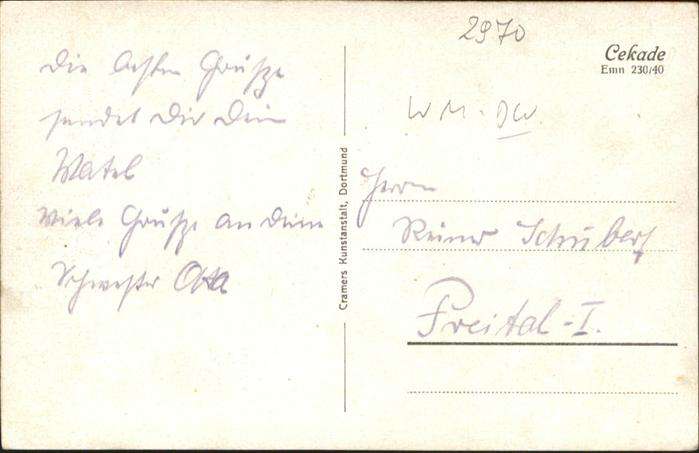 2970
Cekade
Emn 230/40
Die besten Grüße
sendet Dir Dein
Viele Grüße an Deine
Schwester
W M - DW
Cramers Kunstanstalt, Dortmund
Herrn
Reiner Schubert
Freital - I.